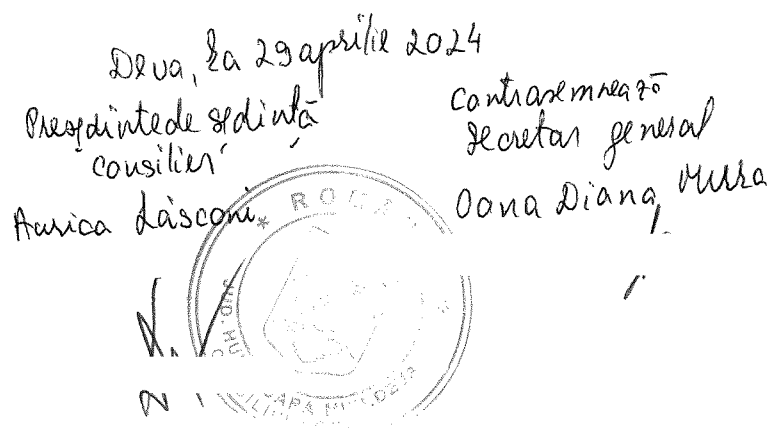 Deva, la 29 aprilie 2024
Președinte de ședință
consilier
Aurica Lăsconi
Contrasemnează
secretar general
Oana Diana
* ROMÂ
JUD. HU